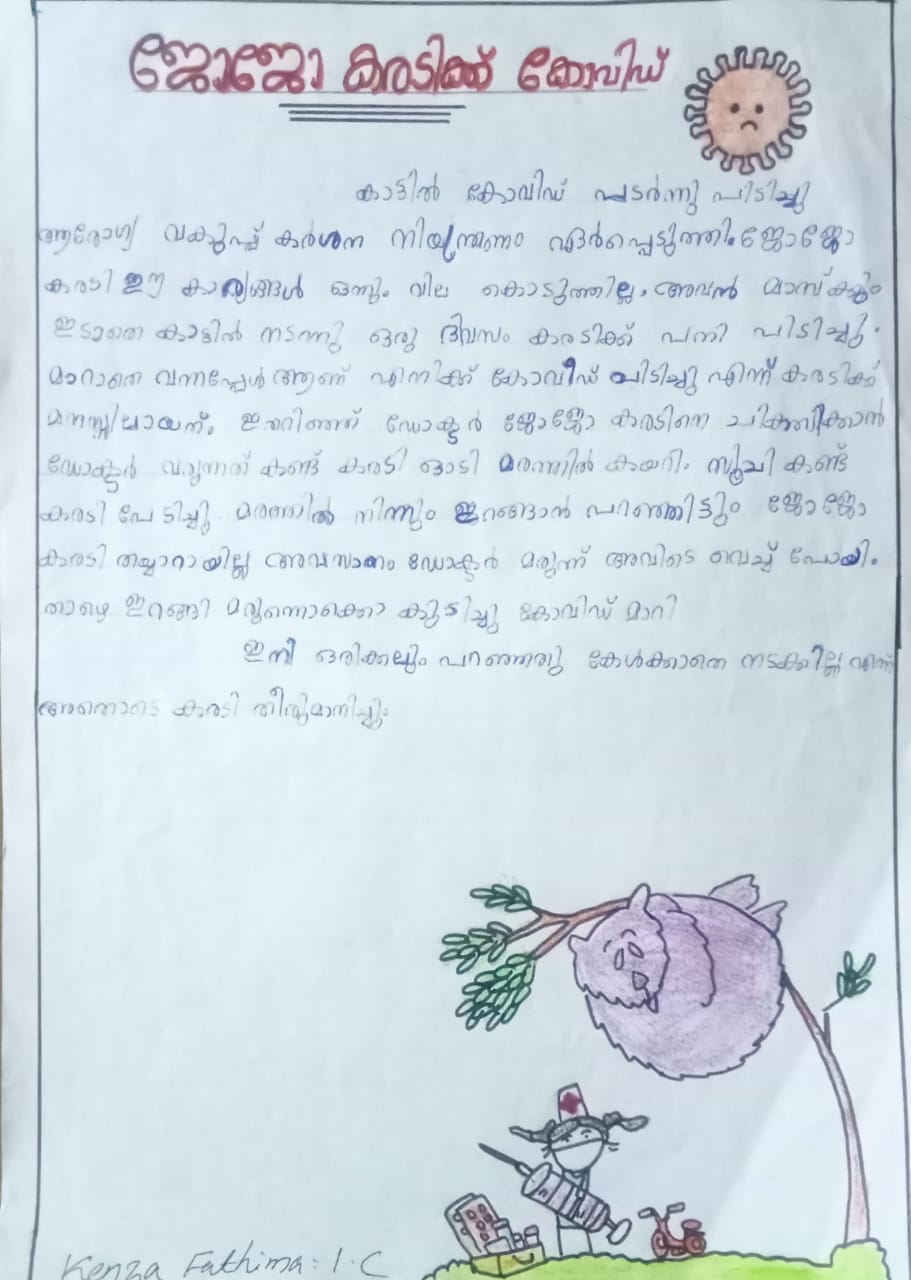 ജോജോ കരടിക്ക് കോവിഡ്
കാട്ടിൽ കോവിഡ് പടർന്നു പിടിച്ചു
ആരോഗ്യ വകുപ്പ് കർശന നിയന്ത്രണം ഏർപ്പെടുത്തി. ജോജോ
കരടി ഈ കാര്യങ്ങൾ ഒന്നും വില കൊടുത്തില്ല. അവൻ മാസ്ക്കും
ഇടാതെ കാട്ടിൽ നടന്നു ഒരു ദിവസം കരടിക്ക് പനി പിടിച്ചു.
മാറാതെ വന്നപ്പേൾ ആണ് എനിക്ക് കോവീഡ് പിടിച്ചു എന്ന് കരടിക്ക്
മനസ്സിലായത്. ഇതറിഞ്ഞ് ഡോക്ടർ ജോജോ കരടിനെ ചികത്സിക്കാൻ
ഡോക്ടർ വരുന്നത് കണ്ട് കരടി ഓടി മരത്തിൽ കയറി. സൂചി കണ്ട്
കരടി പേടിച്ചു. മരത്തിൽ നിന്നും ഇറങ്ങാൻ പറഞ്ഞിട്ടും ജോജോ
കരടി തയ്യാറായില്ല അവസാനം ഡോക്ടർ മരുന്ന് അവിടെ വെച്ച് പോയി.
താഴെ ഇറങ്ങി മരുന്നൊക്കൊ കുടിച്ചു കോവിഡ് മാറി
ഇനി ഒരിക്കലും പറഞ്ഞതു കേൾക്കാതെ നടക്കില്ല എന്ന്
അതൊടെ കരടി തീരുമാനിച്ചു.
Kenza Fathima: 1.C